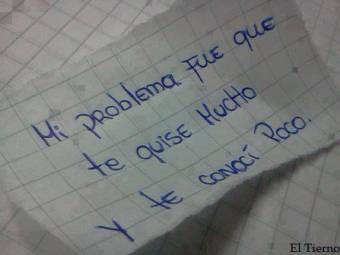 Mi problema fue que
te quise mucho
y te conocí poco.
El Tierno